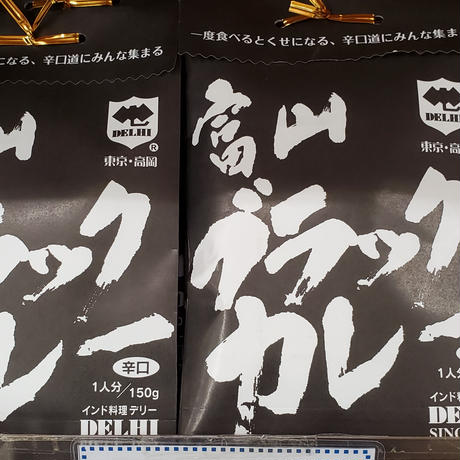 になる、辛口道にみんな集まる
山
DELHI
®
東京・高岡
ラック
レー
辛口
1人分/150g
インド料理 デリー
DELHI
一度食べるとくせになる、辛口道にみんな集まる
富山
DELHI
東京・高岡
ブラック
カレー
1人分
インド料理 デリ
DE
SINC